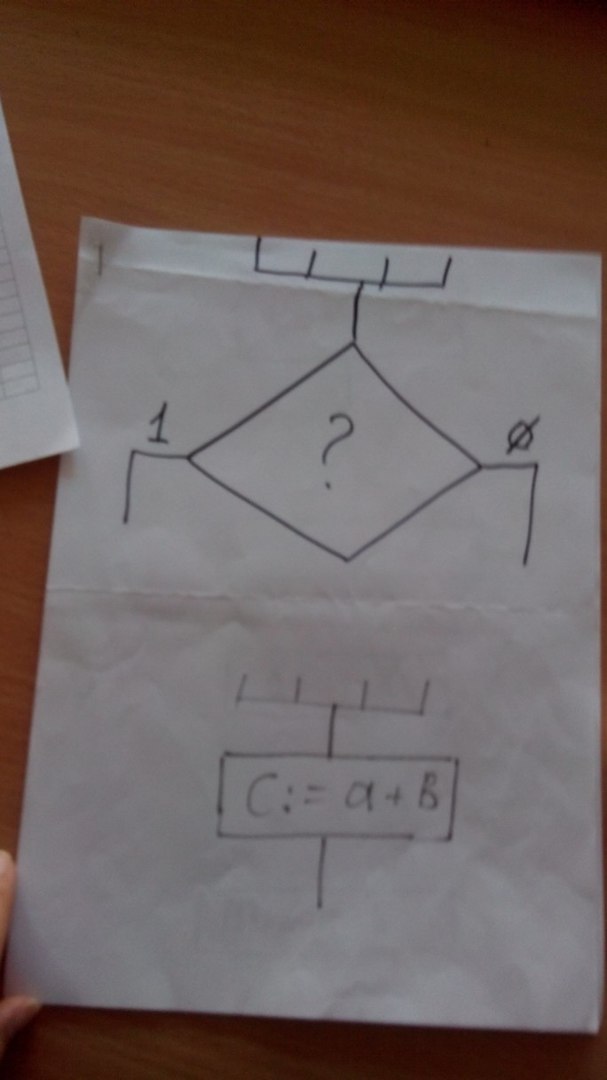 1 Ø
?
C := a + B